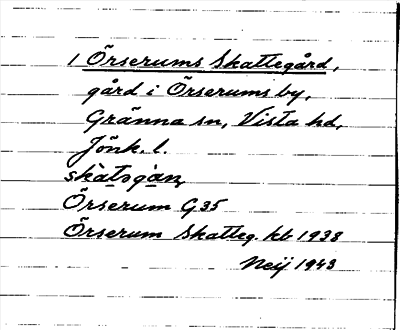 1 Örserums Skattegård,
gård i Örserums by,
Gränna sn, Vista hd,
Jönk. l.
skàtsgàn,
Örserum G35
Örserum Skatteg. kb 1938
Neij 1943